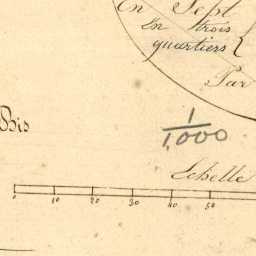 en Sept
en trois
quartiers {
Par
Bis
1/1.000
Echelle
0 10 20 30 40 50